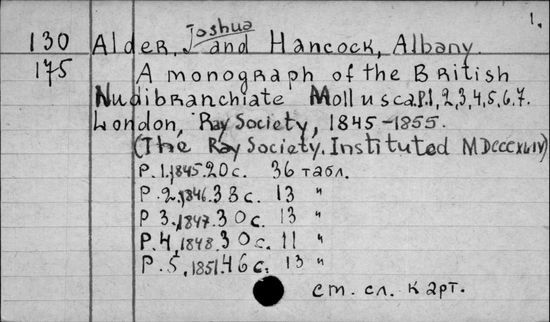 1.
130 Alder, Joshua and Hancock, Albany.
175 A monograph of the British
Nudibranchiate Mollusca. P.1,2,3,4,5,6,7.
London, Ray Society, 1845-1855.
(The Ray Society. Instituted MDCCCXLIV)
P. 1. 1845. 20 с. 36 табл.
P. 2. 1846. 33 с. 13 "
P 3. 1847. 30 с. 13 "
P. 4. 1848. 30 с. 11 "
P. 5. 1851. 46 с. 13 "
см. сл. карт.